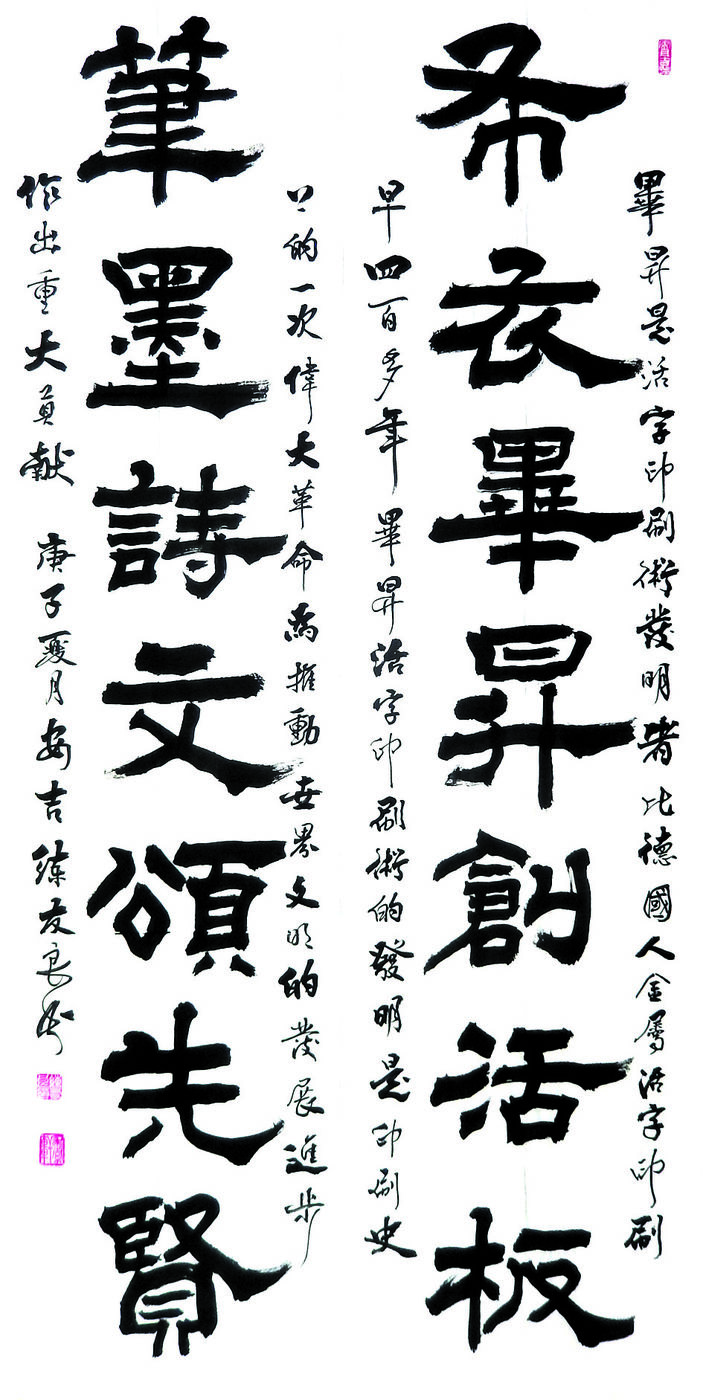 布衣畢昇創活板
筆墨詩文頌先賢
畢昇是活字印刷術發明者比德國人金屬活字印刷
早四百多年畢昇活字印刷術的發明是印刷史
上的一次偉大革命為推動世界文明的發展進步
作出重大貢獻 庚子夏月安吉練友良書